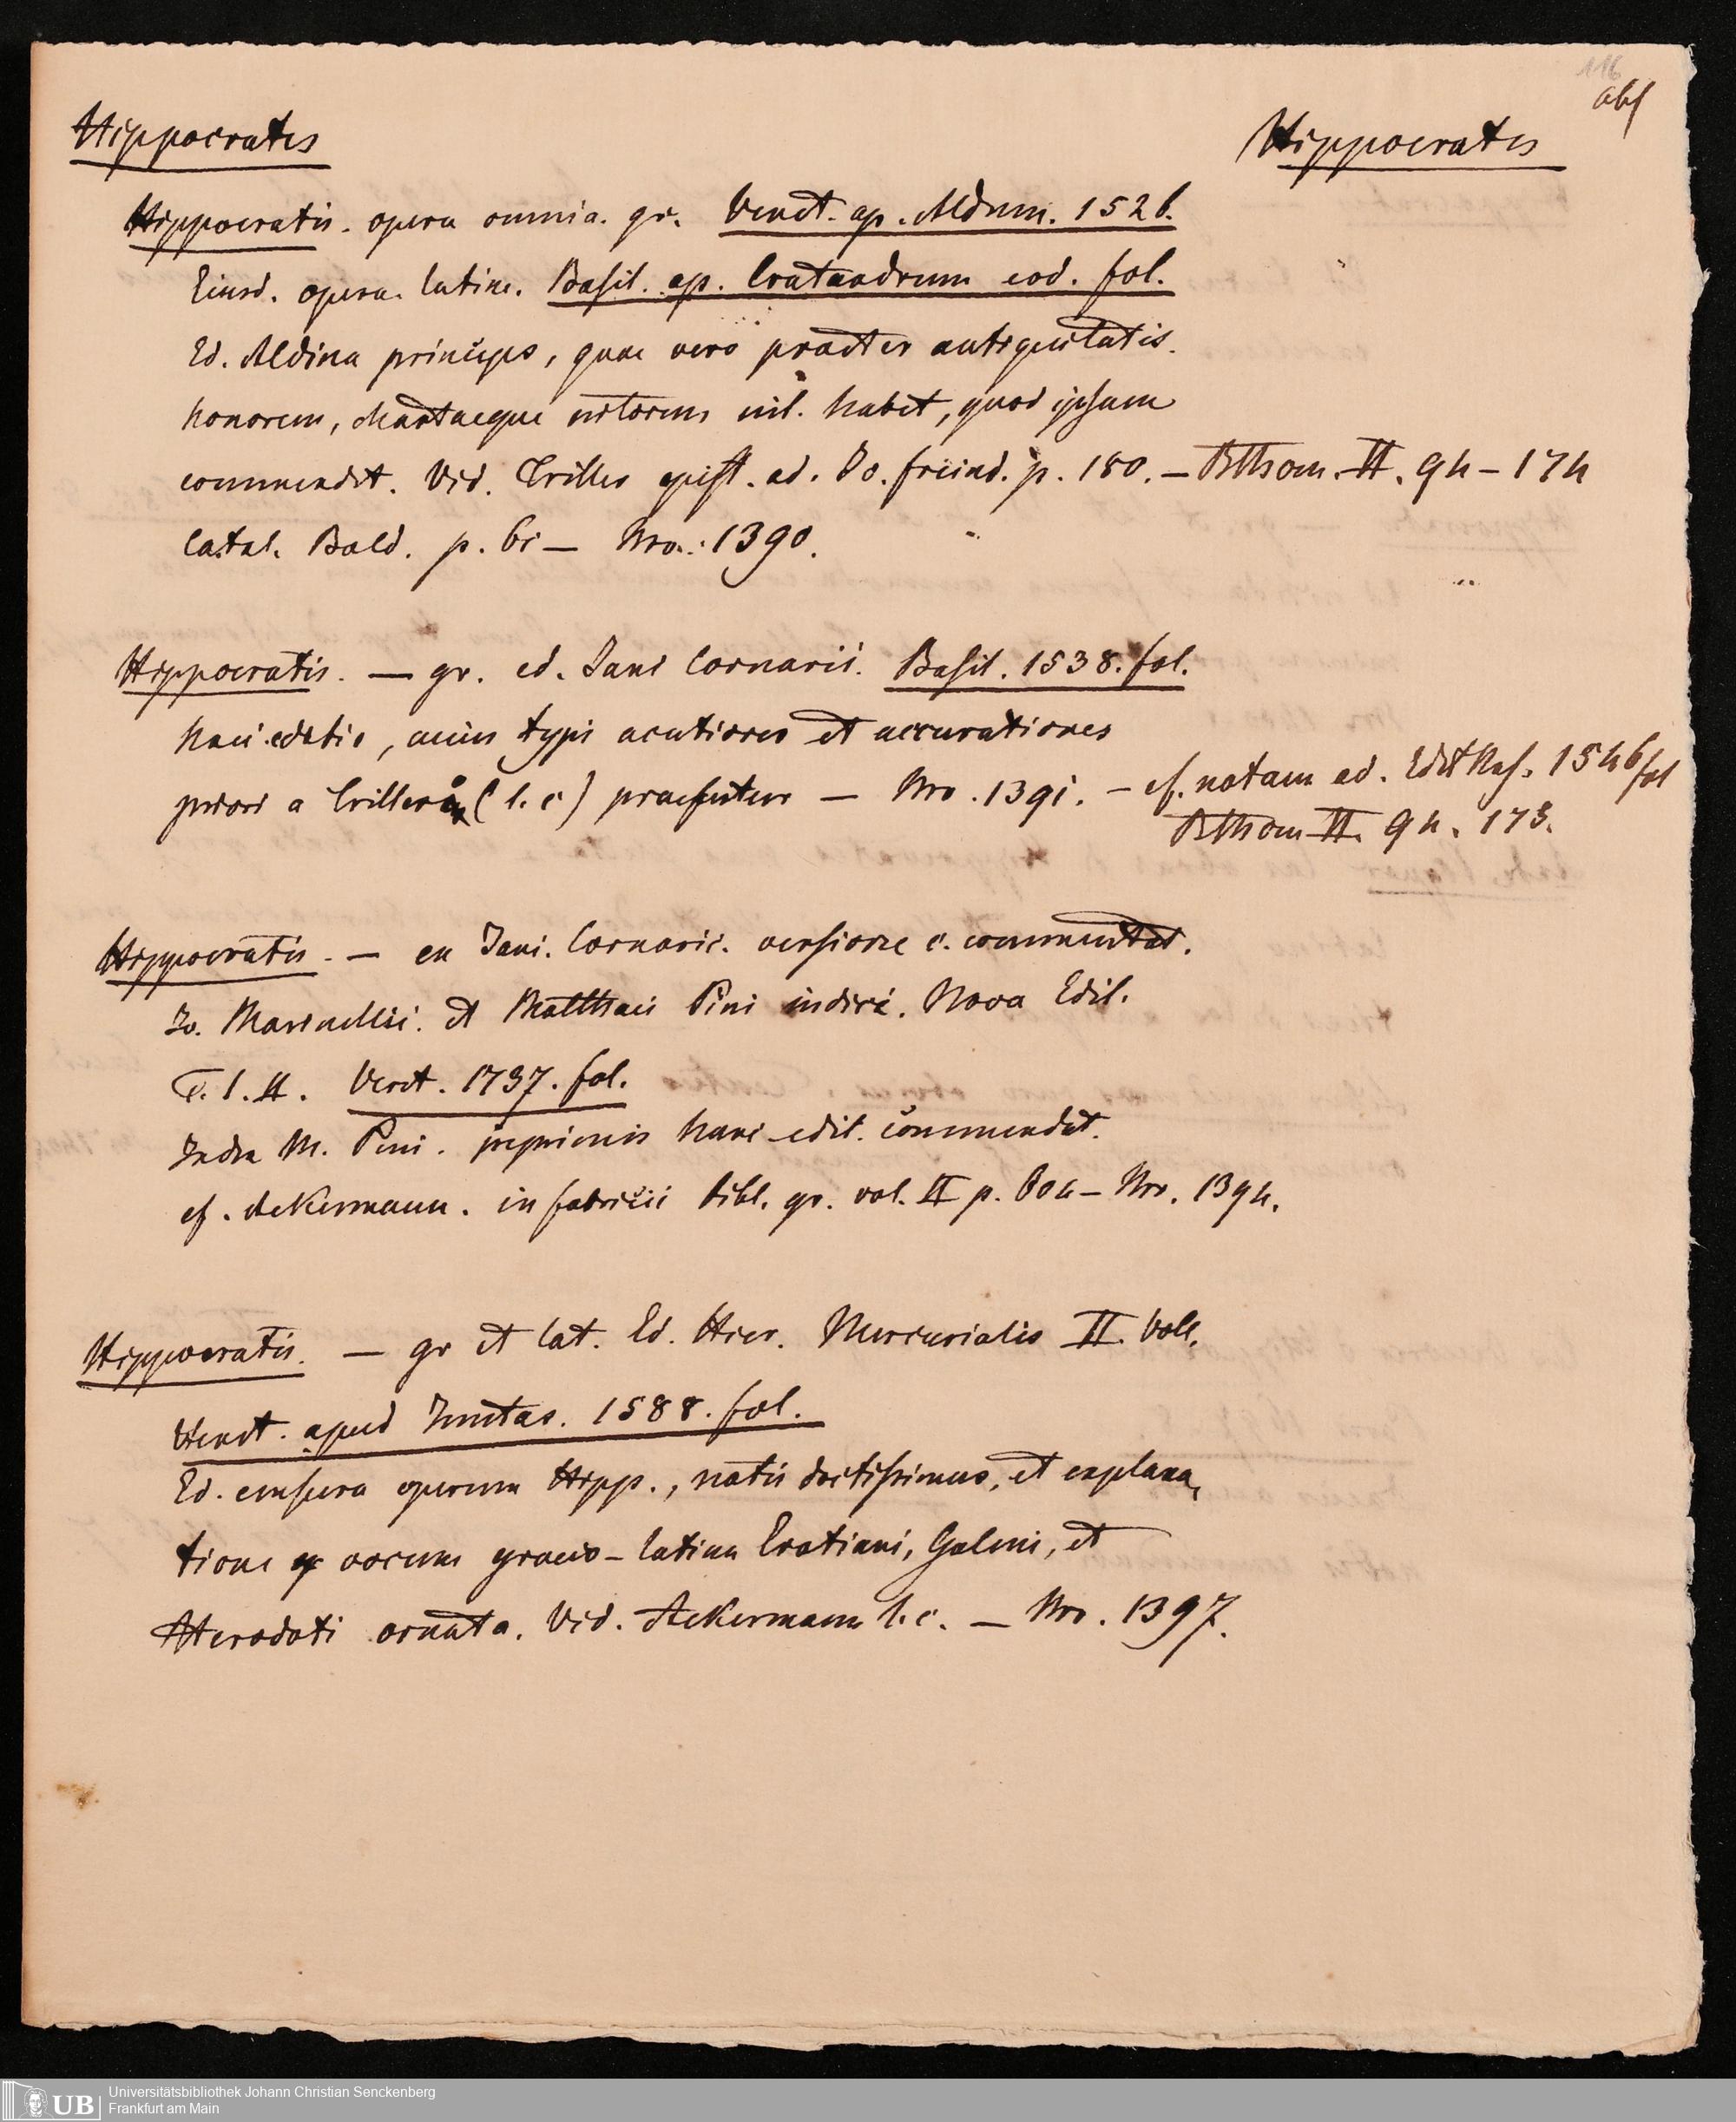 116
abs
Hippocrates
Hippocrates
Hippocratis. opera omnia. gr. Venet. ap. Aldum. 1526.
Eiusd. opera latine. Basil. ap. Cratandrum eod. fol.
Ed. Aldina princeps, quae vero praeter antiquitatis
honorem, chartaeque nitorem nil. habet, quod ipsam
commendet. Vid. Triller epist. ad. Jo. freind. p. 180. — Bthom. II. 94 – 174
Catal. Bald. p. 61 — Nro. 1390.
Hippocratis. — gr. ed. Jani Cornarii. Basil. 1538. fol.
Haec editio, cuius typi acutiores et accuratiores
priori a Trillero (l. c) praefertur — Nro. 1391. — cf. notam ad. Edit Bas. 1546 fol
Bthom II. 94. 173.
Hippocratis. — ex Jani. Cornarii. versione c. commentar.
Jo. Marinelli. et Matthaei Pini indice. Nova Edit.
T. I. II. Venet. 1737. fol.
Index M. Pini. inprimis hanc edit. commendat.
cf. Ackermann. in fabricii bibl. gr. vol. II p. 604 — Nro. 1394.
Hippocratis. — gr et lat. Ed. Hier. Mercurialis II. Voll.
Venet. apud Juntas. 1588. fol.
Ed. censura operum Hipp., notis doctissimis, et explana,
tione vocum graeco-latina Erotiani, Galeni, et
Herodoti ornata. Vid. Ackermann l. c. — Nro. 1397.
UB Universitätsbibliothek Johann Christian Senckenberg
Frankfurt am Main